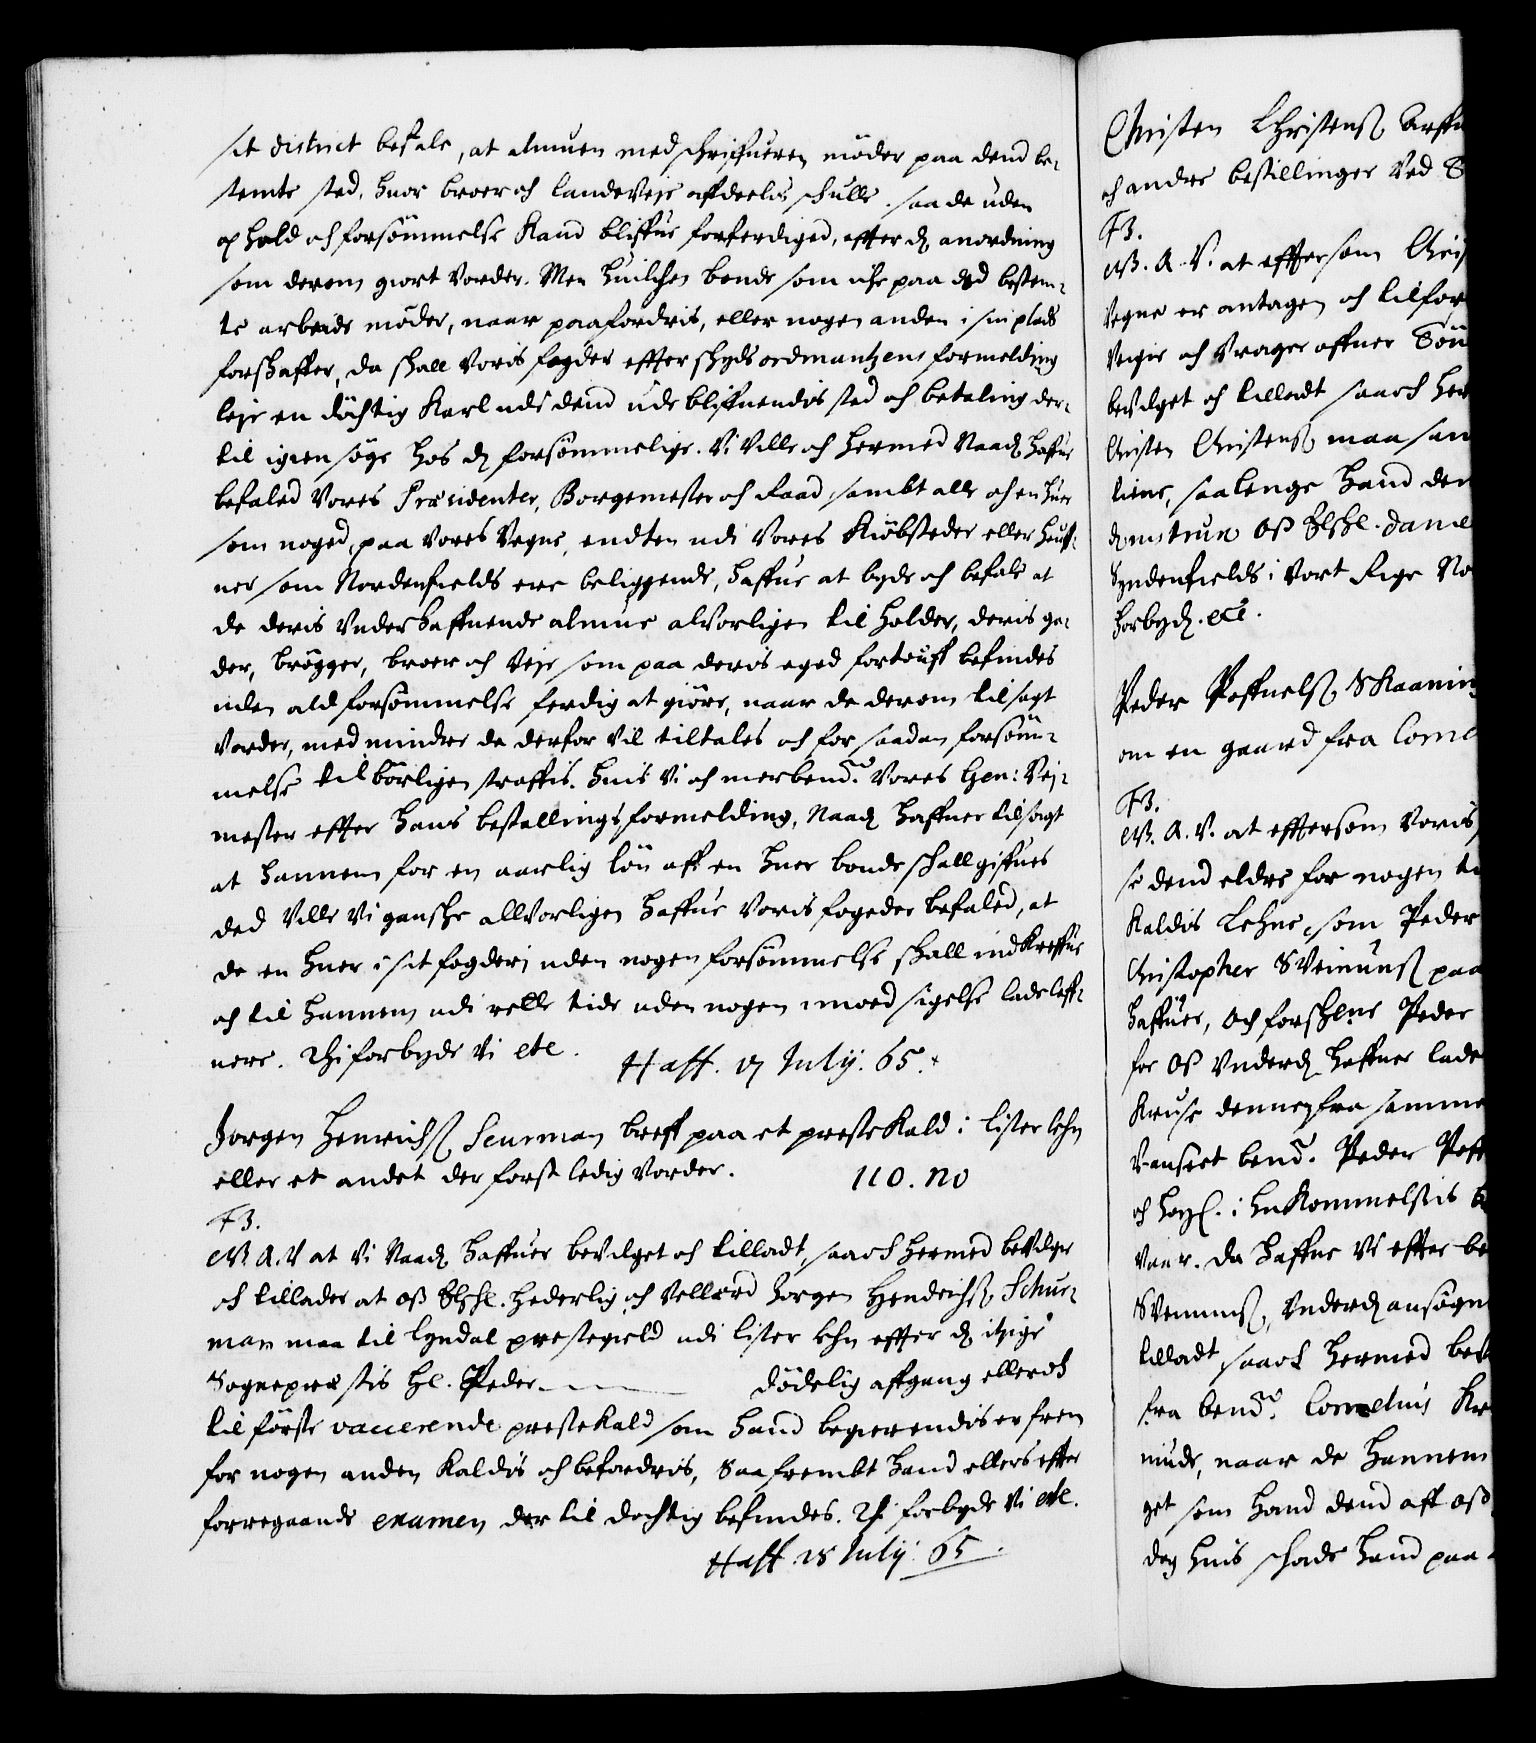 sit district befale, at almuen med schriffueren møder paa dend be-
stemte sted, huor broer och landeveje affdeelis schulle, saa de uden
ophold och forsømmelse kand bliffue forferdiged, effter dend anordning
som derom giort vorder. Men huilchen bonde som iche paa ded bestem-
te arbeide møder, naar paafordris, eller nogen anden i sin plads
forschaffer, da schall voris fogder effter schydsordinantzens formelding
leje en dychtig karl udi dend udebliffuendis sted och betaling der-
til igien søge hos dend forsømmelige. Vi ville och hermed Naad. haffue
befaled vores Præsidenter, Borgemester och Raad, sambt alle och en huer
som noged, paa vores vegne, endten udi vores Kiøbsteder eller hauff-
ner som Nordenfields ere beliggende, haffue at byde och befale at
de deris underhaffuende almue alvorligen til holder, deris ga-
der, brøgger, broer och veje som paa deris eged fortouff befindes
uden ald forsømmelse ferdig at giøre, naar de derom tilsagt
vorder, med mindre de derfor vil tiltales och for saadan forsøm-
melse tilbørligen straffis. Huis vi och merbend.te vores Gen: Vej-
mester effter hans bestallings formelding, Naad. haffuer tilsagt
at hannem for en aarlig løn aff en huer bonde schall giffues
ded ville vi gansche allvorligen haffue voris fogeder befaled, at
de en huer i sit fogderi uden nogen forsømmelse schall indkreffue
och til hannem udi rette tide uden nogen imoed sigelse lade leff-
uere. Thi forbyde vi etc.
Haff. 17 July. 65.
Jorgen Henrichs. Scurman breff paa et preste kald i Lister lehn
eller et andet der først ledig vorder. 110. no
F3.
G.A.V at vi Naad. haffuer bevilget och tilladt, saa och hermed bevilger
och tillader at oß Elsch. Hederlig och Vellærd Jorgen Hendrichs. Schur-
man maa til Lyndal prestegield udi Lister lehn effter dend itzige
Sogneprestis Hr. Peder dødelig affgang eller och
til første vaccerende prestekald som hand begierendis er frem
for nogen anden kaldis och befordris, saa frembt hand ellers effter
forregaande examen der til dychtig befindes. Thi forbyde vi etc.
Haff 18 July. 65.
Christen Christens.
och andre bestillinger ved
F3.
G.A.V. at effter som
vegne er antagen och tilfor
vejer och vrager offuer
bevilget och tilladt saa och
Christen Christens. maa
tiene, saalenge hand
oß Elsch.
Syndenfields i vort Rige
forbyd. etc.
Peder Poffuels.
om en gaard fra
F3.
G.A.V. at effter som voris
se dend eldre for nogen
kaldis Lehne, som Peder
Christopher Sveinuns. paa
haffuer, och
for oß underd. haffuer lade
Kruse fra samme
bend.te Peder
och
vaar. da haffue vi effter
underd. ansøgn
tilladt saa och hermed
fra bend.te Cornelius
minde, naar de hannem
get som hand dend aff oß
dog huis schade hand paa